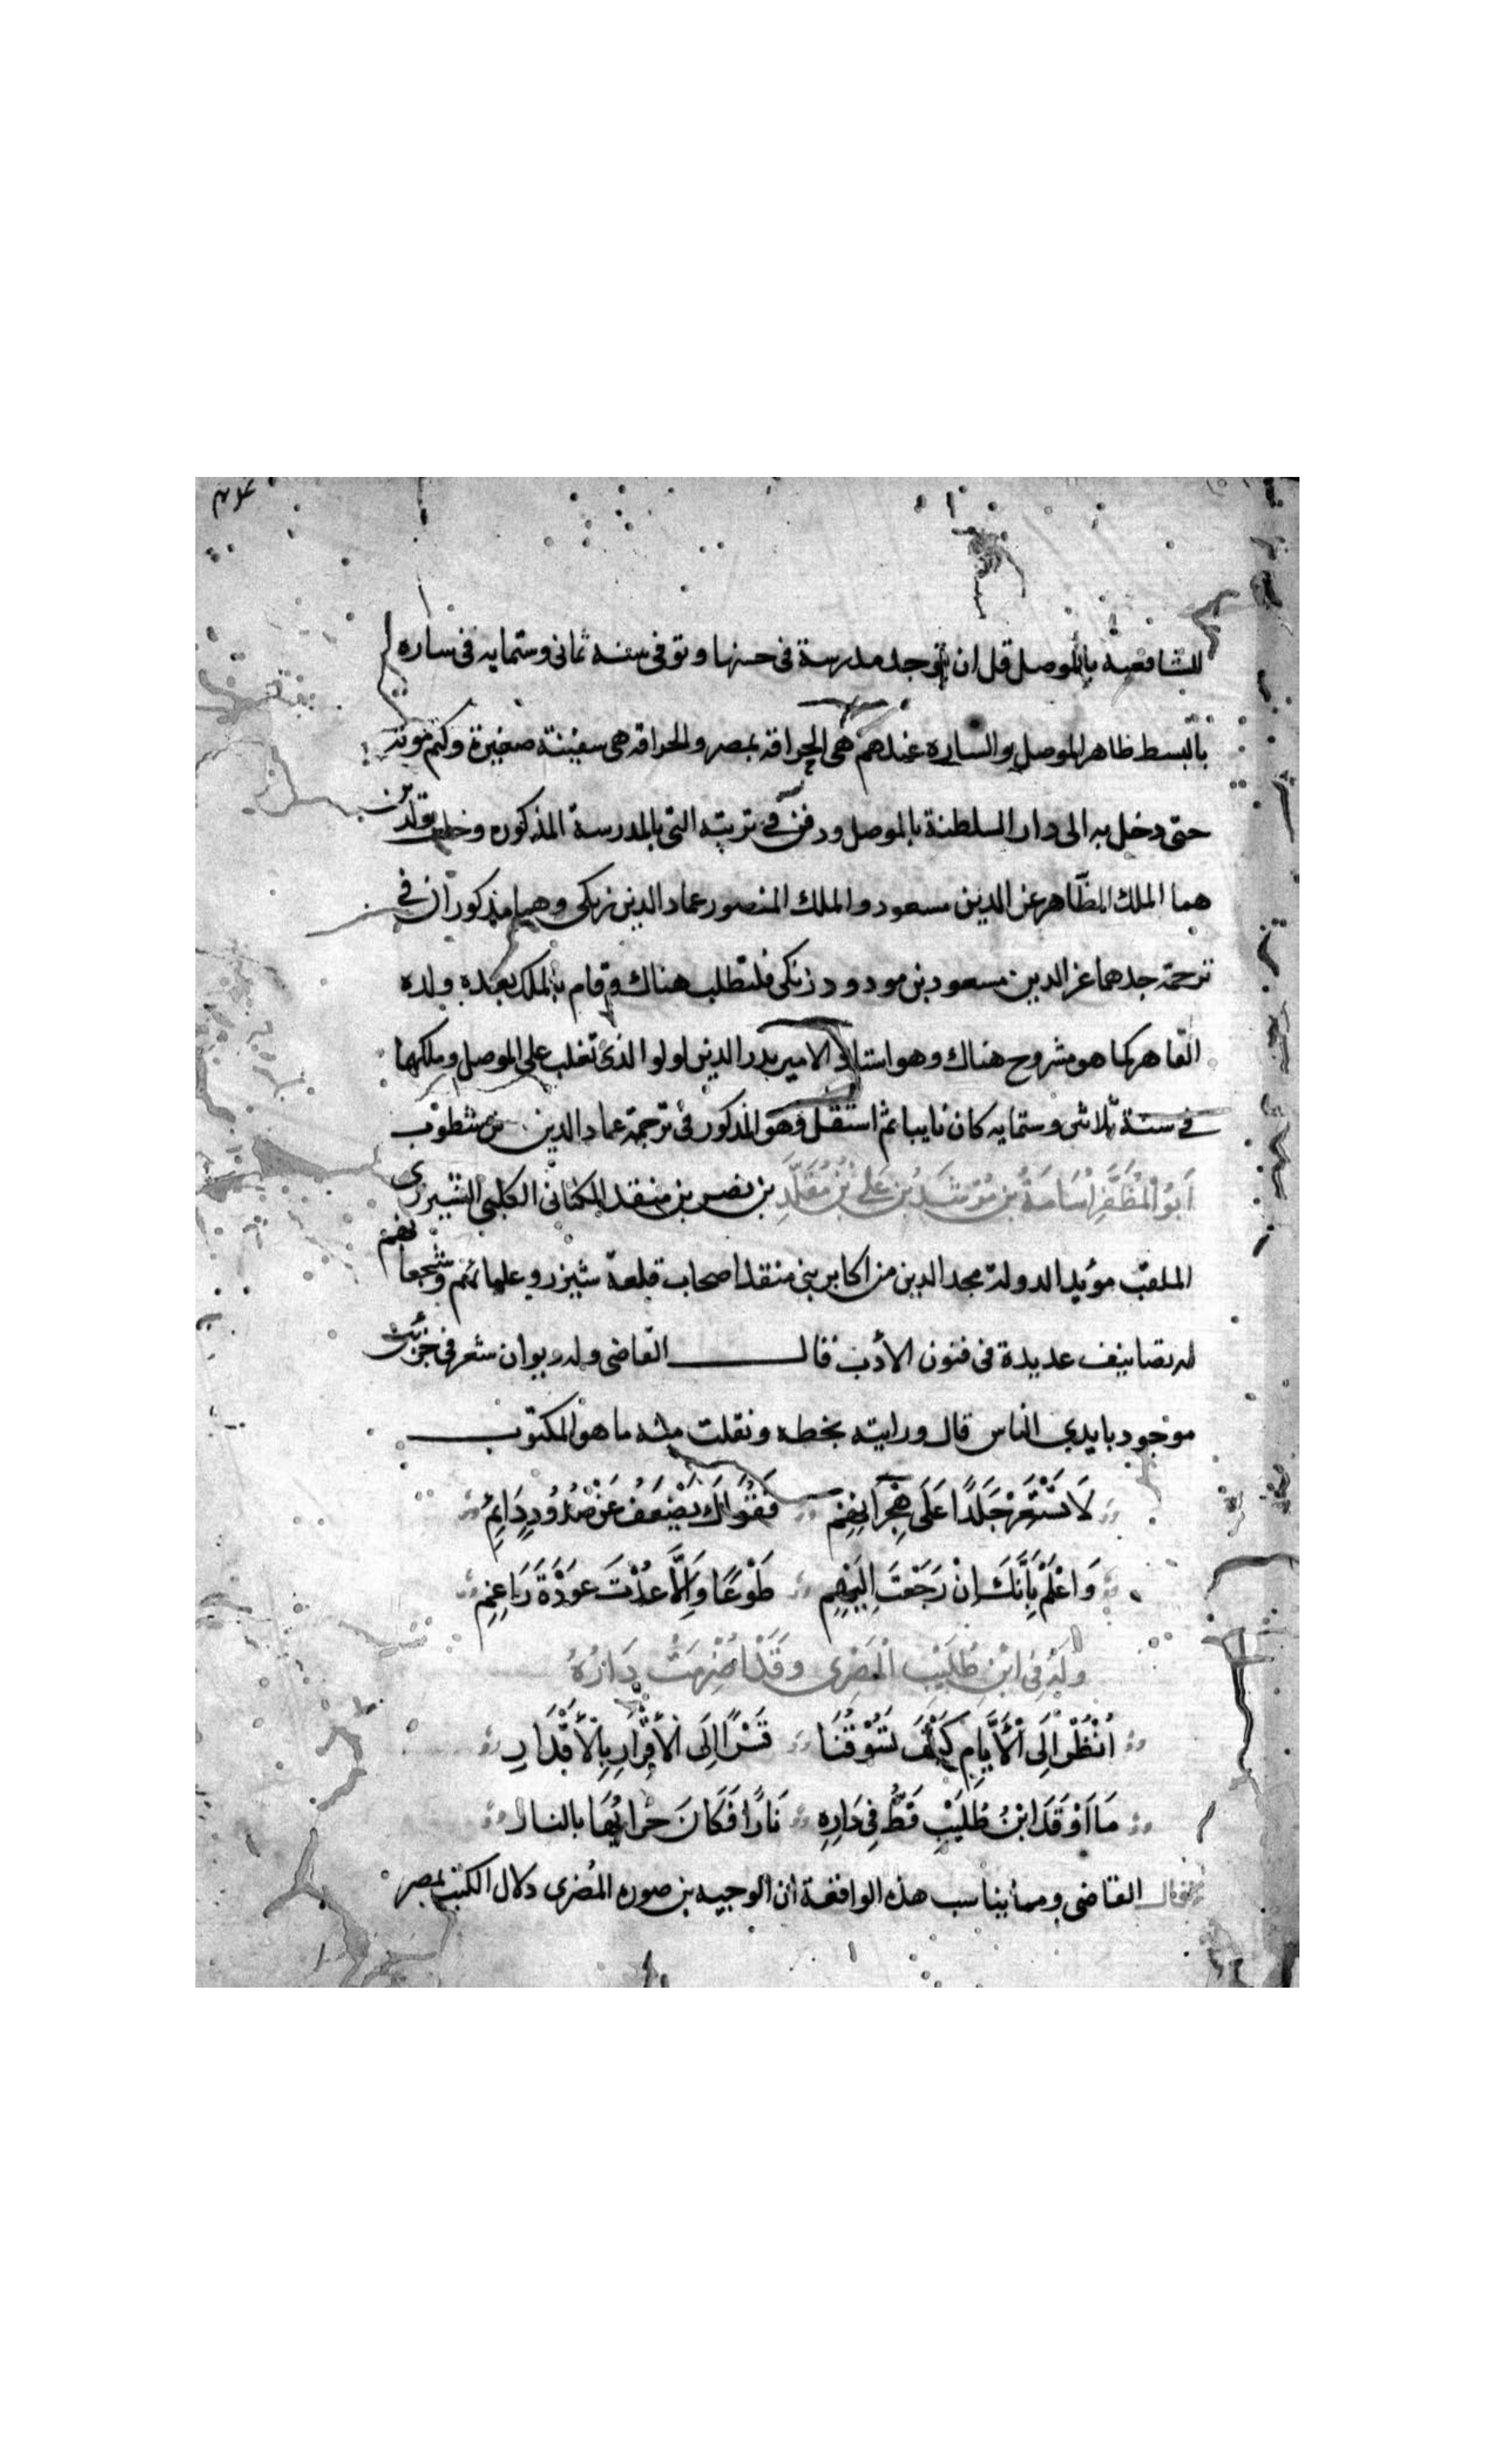 للشافعية بالموصل قل ان توجد مدرسة فى حسنها وتوفى سنه ثمانى وستمايه فى ساره
بالبسط ظاهر الموصل والساره عندهم هى الحراقة بمصر والحراقه هى سفينة صغيرة وكتم موته
حتى دخل به الى دار السلطنة بالموصل ودفن فى تربته التى بالمدرسة المذكوره وخلف ولدين
هما الملك الظاهر عز الدين مسعود والملك المنصور عماد الدين زنكى وهما مذكوران فى
ترجمة جدهما عز الدين مسعود بن مودود زنكى فلتطلب هناك وقام بالملك بعده ولده
القاهر كما هو مشروح هناك وهو استاذ الامير بدر الدين لولو الذى تغلب على الموصل وملكها
فى سنة ثلاثين وستمايه كان نايبا ثم استقل وهو المذكور فى ترجمة عماد الدين بن مشطوب
أَبُو الْمُظَفَّرِ أُسَامَةُ بن مُرْشَدُ بن عَلِى بْنُ مُقَلَّدِ بن نصر بن منقد الكنانى الكلبى الشيزرى
الملقب مؤيد الدولة مجد الدين من اكابر بنى منقد اصحاب قلعة شيزر وعلمائهم وشجعانهم
له تصانيف عديدة فى فنون الأدب قال القاضى وله ديوان شعر فى جزئين
موجود بايدى الناس قال ورايته بخطه ونقلت منه ما هو المكتوب
لَا تَسْتَعِرْ جَلَدًا عَلَى هِجْرَانِهِمْ فَقُوَاكَ تَضْعَفُ عَنْ صُدُودٍ دَائِمٍ
وَاعْلَمْ بِأَنَّكَ إِنْ رَجَعْتَ إِلَيْهِمِ طَوْعًا وَإِلَّا عُدْتَ عَوْدَةَ رَاغِمِ
وَلَهُ فِى ابْنِ طُلَيْبِ الْمَصْرِى وَقَدْ احْتَرَقَتْ دَارُهُ
اُنْظُرْ إِلَى الْأَيَّامِ كَيْفَ تَسُوقُنَا قَسْرًا إِلَى الْأَقْرَارِ بِالْأَقْدَارِ
مَا اَوْقَدَ ابْنُ طُلَيْبِ قَطُّ فِى دَارِهِ نَارًا فَكَانَ خَرَابُهَا بالنار
قال القاضى ومما يناسب هذه الواقعة ان الوجيه بن صوره المصرى دلال الكتب بمصر